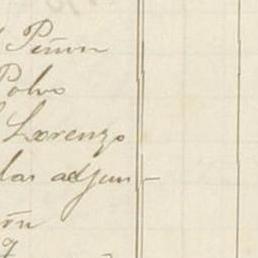 Piñon
Polvo
Lorenzo
las adjun-